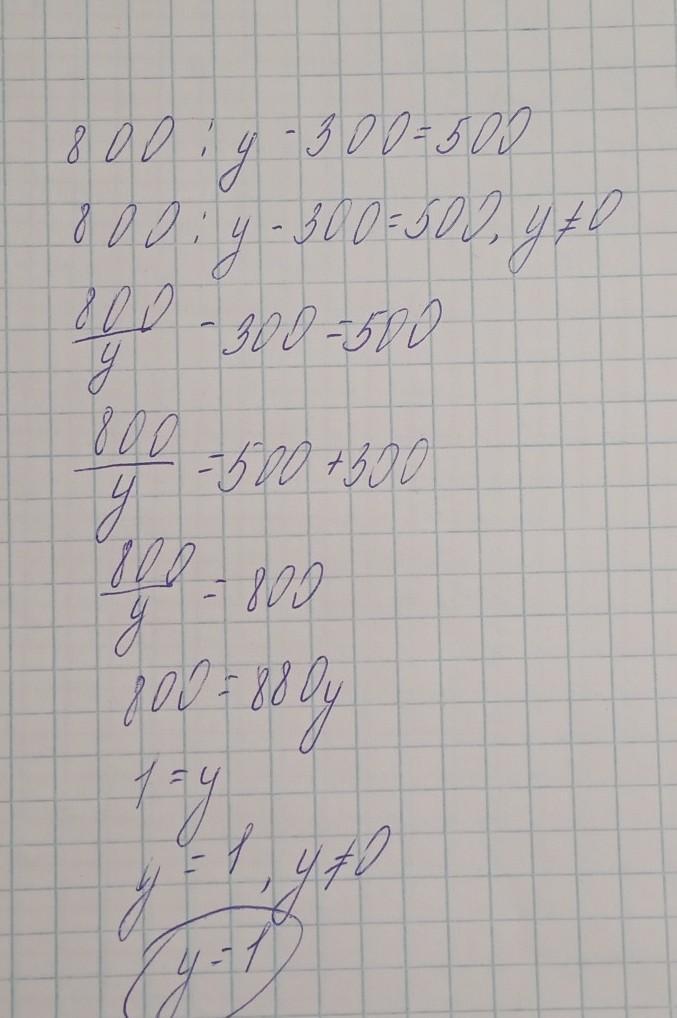 800 : y - 300 = 500
800 : y - 300 = 500, y ≠ 0
800/y - 300 = 500
800/y = 500 + 300
800/y = 800
800 = 880y
1 = y
y = 1, y ≠ 0
y = 1